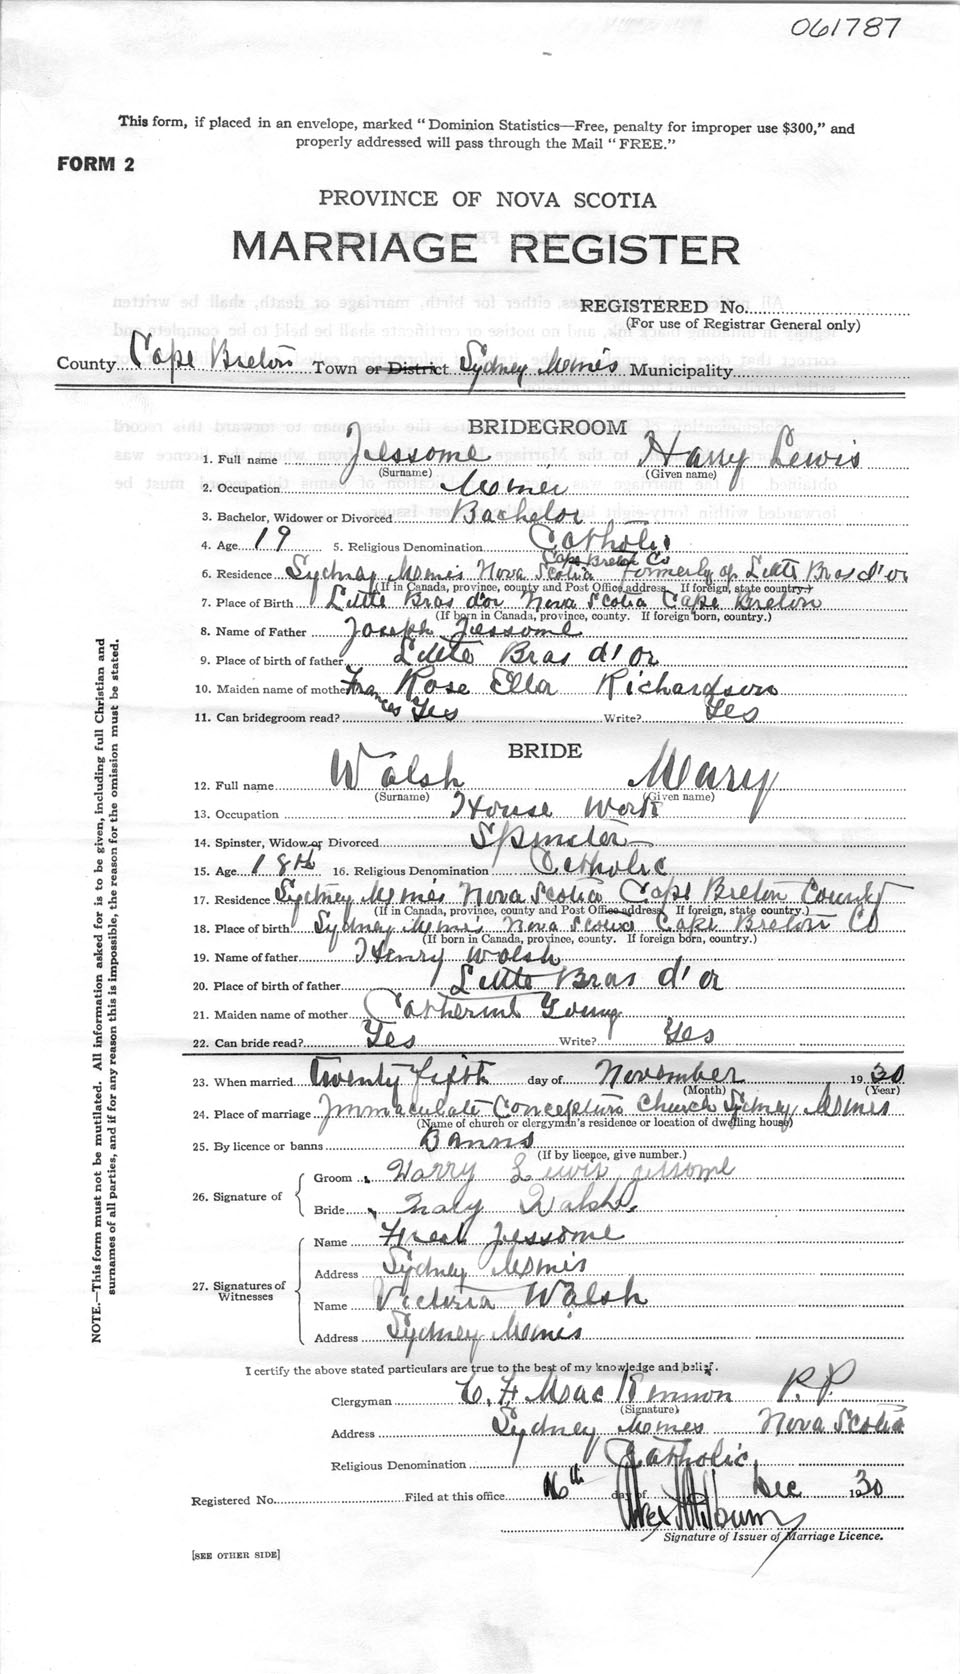 061787
This form, if placed in an envelope, marked "Dominion Statistics—Free, penalty for improper use $300," and
properly addressed will pass through the Mail "FREE."
FORM 2
PROVINCE OF NOVA SCOTIA
MARRIAGE REGISTER
REGISTERED No.
(For use of Registrar General only)
County Cape Breton Town or District Sydney Mines Municipality
BRIDEGROOM
1. Full name Jessome Harry Lewis
(Surname) (Given name)
2. Occupation Miner
3. Bachelor, Widower or Divorced Bachelor
4. Age 19 5. Religious Denomination Catholic
Cape Breton Co
6. Residence Sydney Mines Nova Scotia formerly of Little Bras d'or
(If in Canada, province, county and Post Office address. If foreign, state country.)
7. Place of Birth Little Bras d'or Nova Scotia Cape Breton
(If born in Canada, province, county. If foreign born, country.)
8. Name of Father Joseph Jessome
9. Place of birth of father Little Bras d'or
10. Maiden name of mother Frances Rose Ella Richardson
11. Can bridegroom read? Yes Write? Yes
BRIDE
12. Full name Walsh Mary
(Surname) (Given name)
13. Occupation House Work
14. Spinster, Widow or Divorced Spinster
15. Age 18th 16. Religious Denomination Catholic
17. Residence Sydney Mines Nova Scotia Cape Breton County
(If in Canada, province, county and Post Office address. If foreign, state country.)
18. Place of birth Sydney Mines Nova Scotia Cape Breton Co
(If born in Canada, province, county. If foreign born, country.)
19. Name of father Henry Walsh
20. Place of birth of father Little Bras d'or
21. Maiden name of mother Catherine Young
22. Can bride read? Yes Write? Yes
23. When married Twenty fifth day of November 1930
(Month) (Year)
24. Place of marriage Immaculate Conception Church Sydney Mines
(Name of church or clergyman's residence or location of dwelling house)
25. By licence or banns Banns
(If by licence, give number.)
26. Signature of
Groom Harry Lewis Jessome
Bride Mary Walsh
27. Signatures of Witnesses
Name Jessome
Address Sydney Mines
Name Victoria Walsh
Address Sydney Mines
I certify the above stated particulars are true to the best of my knowledge and belief.
Clergyman C. F. MacKinnon P.P.
(Signature)
Address Sydney Mines Nova Scotia
Religious Denomination Catholic
Registered No. Filed at this office 16th day of Dec 1930
Signature of Issuer of Marriage Licence.
[SEE OTHER SIDE]
NOTE.—This form must not be mutilated. All information asked for is to be given, including full Christian and
surnames of all parties, and if for any reason this is impossible, the reason for the omission must be stated.